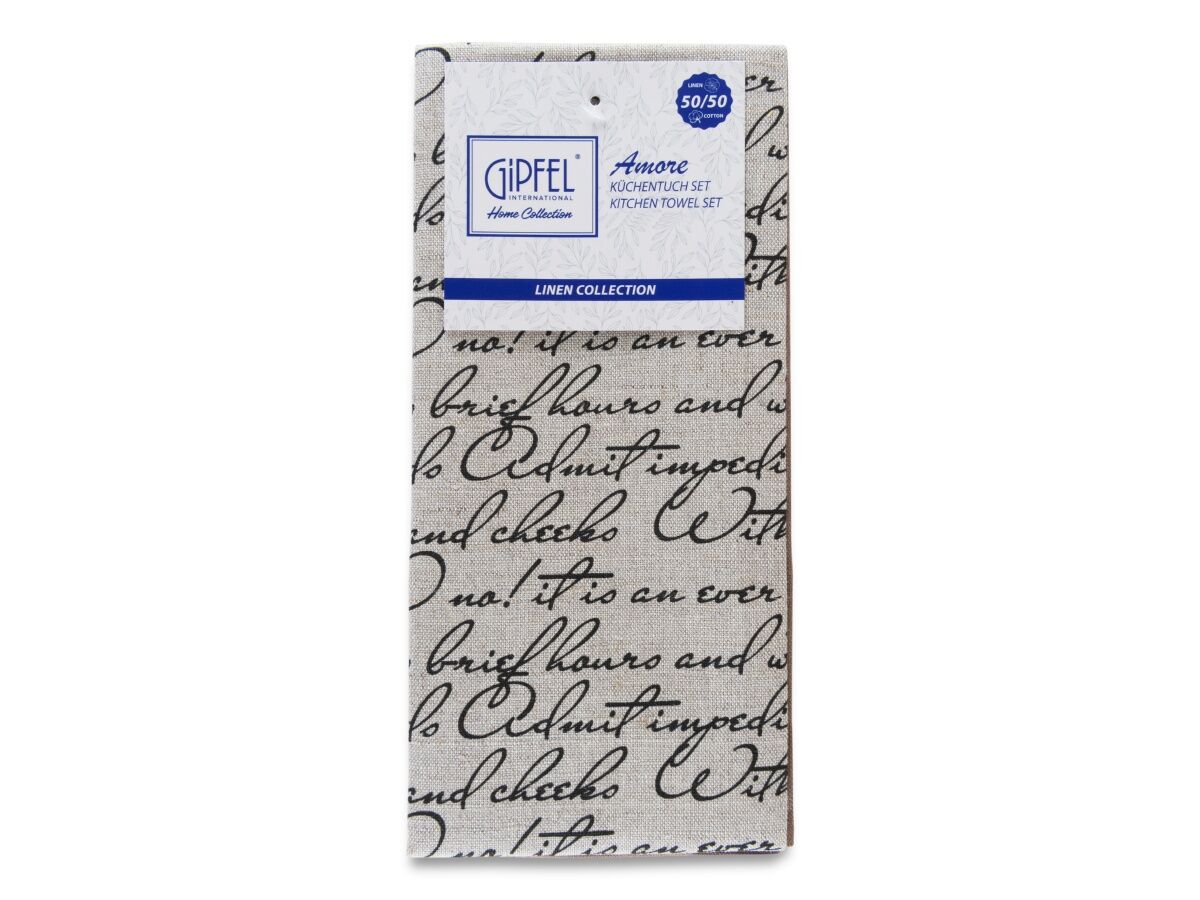 LINEN
50/50
COTTON
GiPFEL®
INTERNATIONAL
Home Collection
Amore
KÜCHENTUCH SET
KITCHEN TOWEL SET
LINEN COLLECTION
O no! it is an ever
brief hours and w
ds Admit impedi
and cheeks With
O no! it is an ever
brief hours and w
ds Admit impedi
and cheeks With
O no! it is an ever